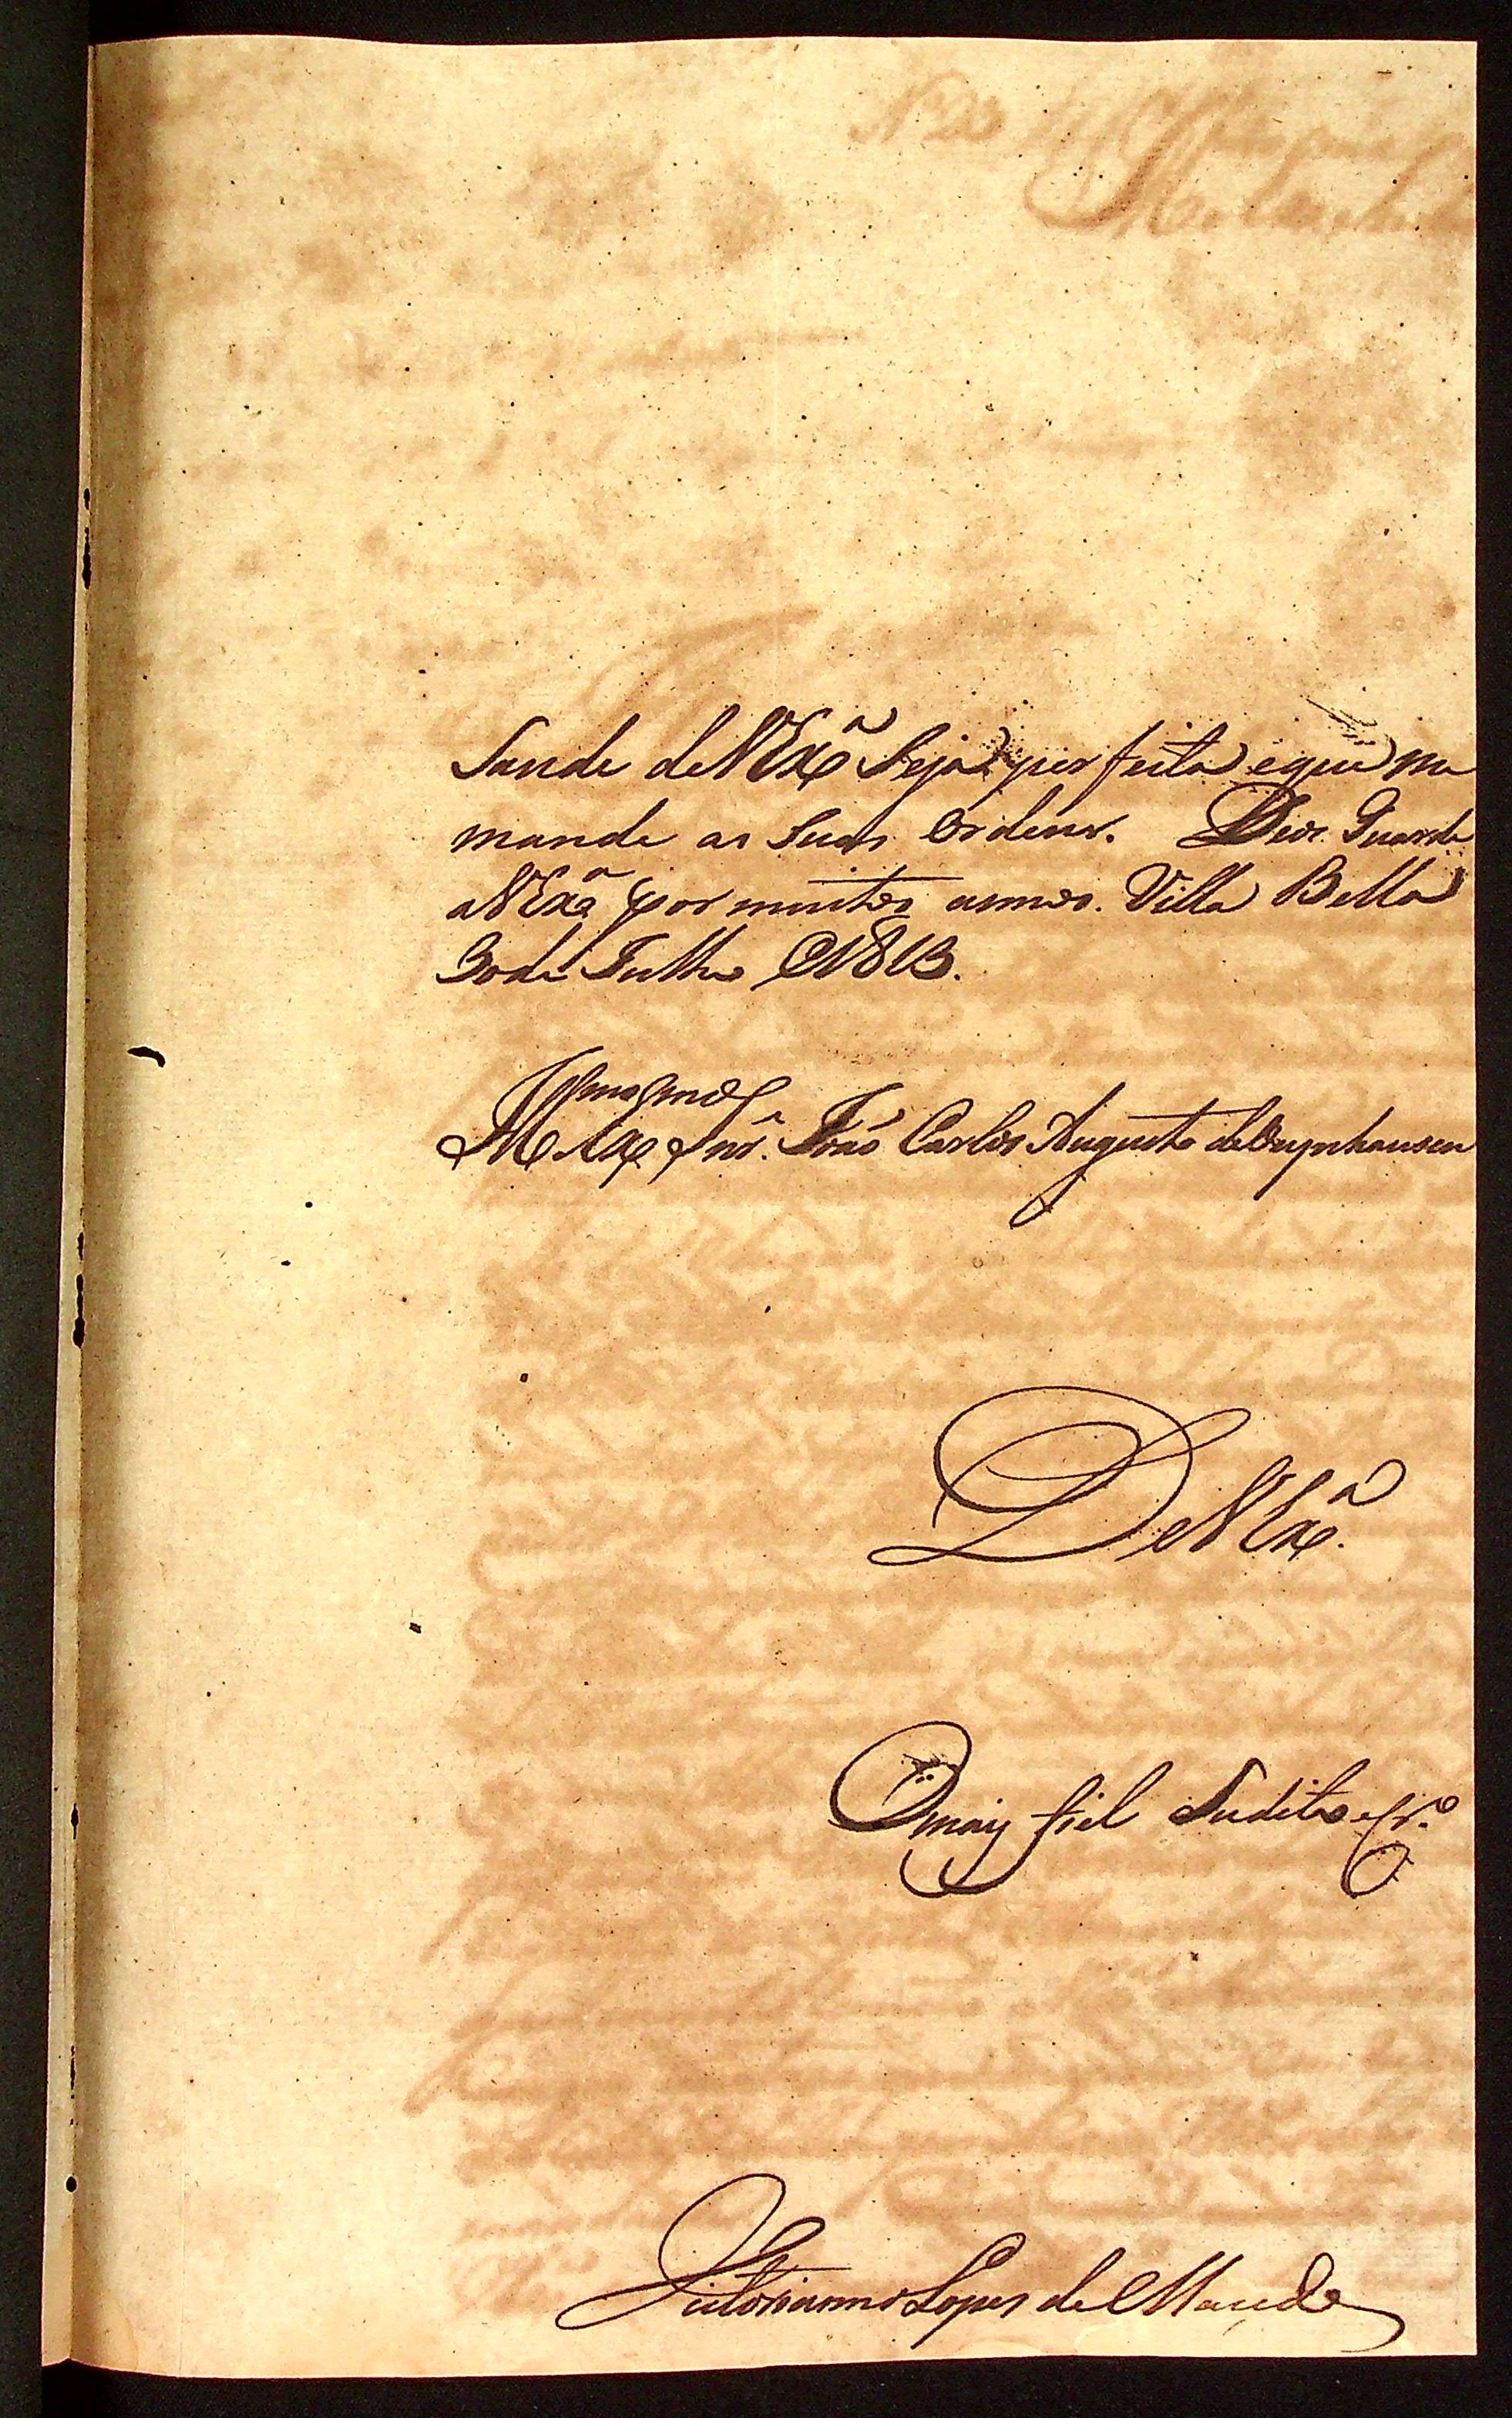 Saude deVExª Seja perfeita eque me
mande as Suas Ordens. Deos Guarde
aVExª por muitos annos. Villa Bella
30 de Julho 1813.
Illmo Exmo
Snr. João Carlos Augusto deOeynhausen
DeVExª.
Omais fiel Subdito eCr.º
Victoriano Lopes de Macedo